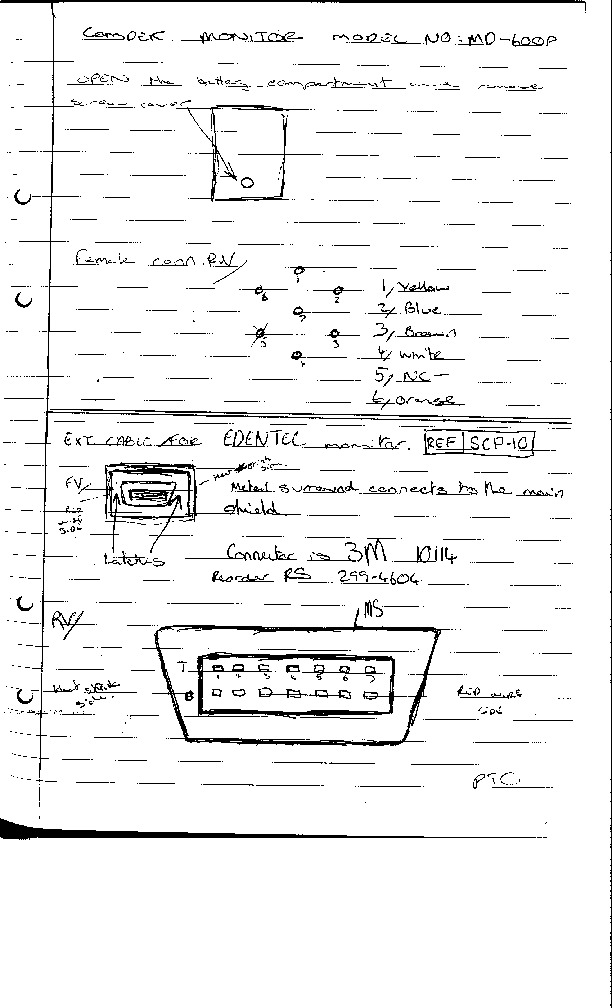 COMDEK MONITOR MODEL NO: MD-600P
OPEN the battery compartment and remove
screw cover
Female conn. RV/
1
6
2
7
5
3
4
1/ Yellow
2/ Blue
3/ Brown
4/ White
5/ NC -
6/ Orange
EXT CABLE FOR EDENTEC monitor. REF SCP-10
FV/
Heat shrink
side
Rip
wire
side
Metal surround connects to the main
shield
Latches
Connector is 3M 10114
Reorder RS 299-4604
RV/
MS
T
1 2 3 4 5 6 7
B
Heat shrink
side
Rip wire
side
PTO.